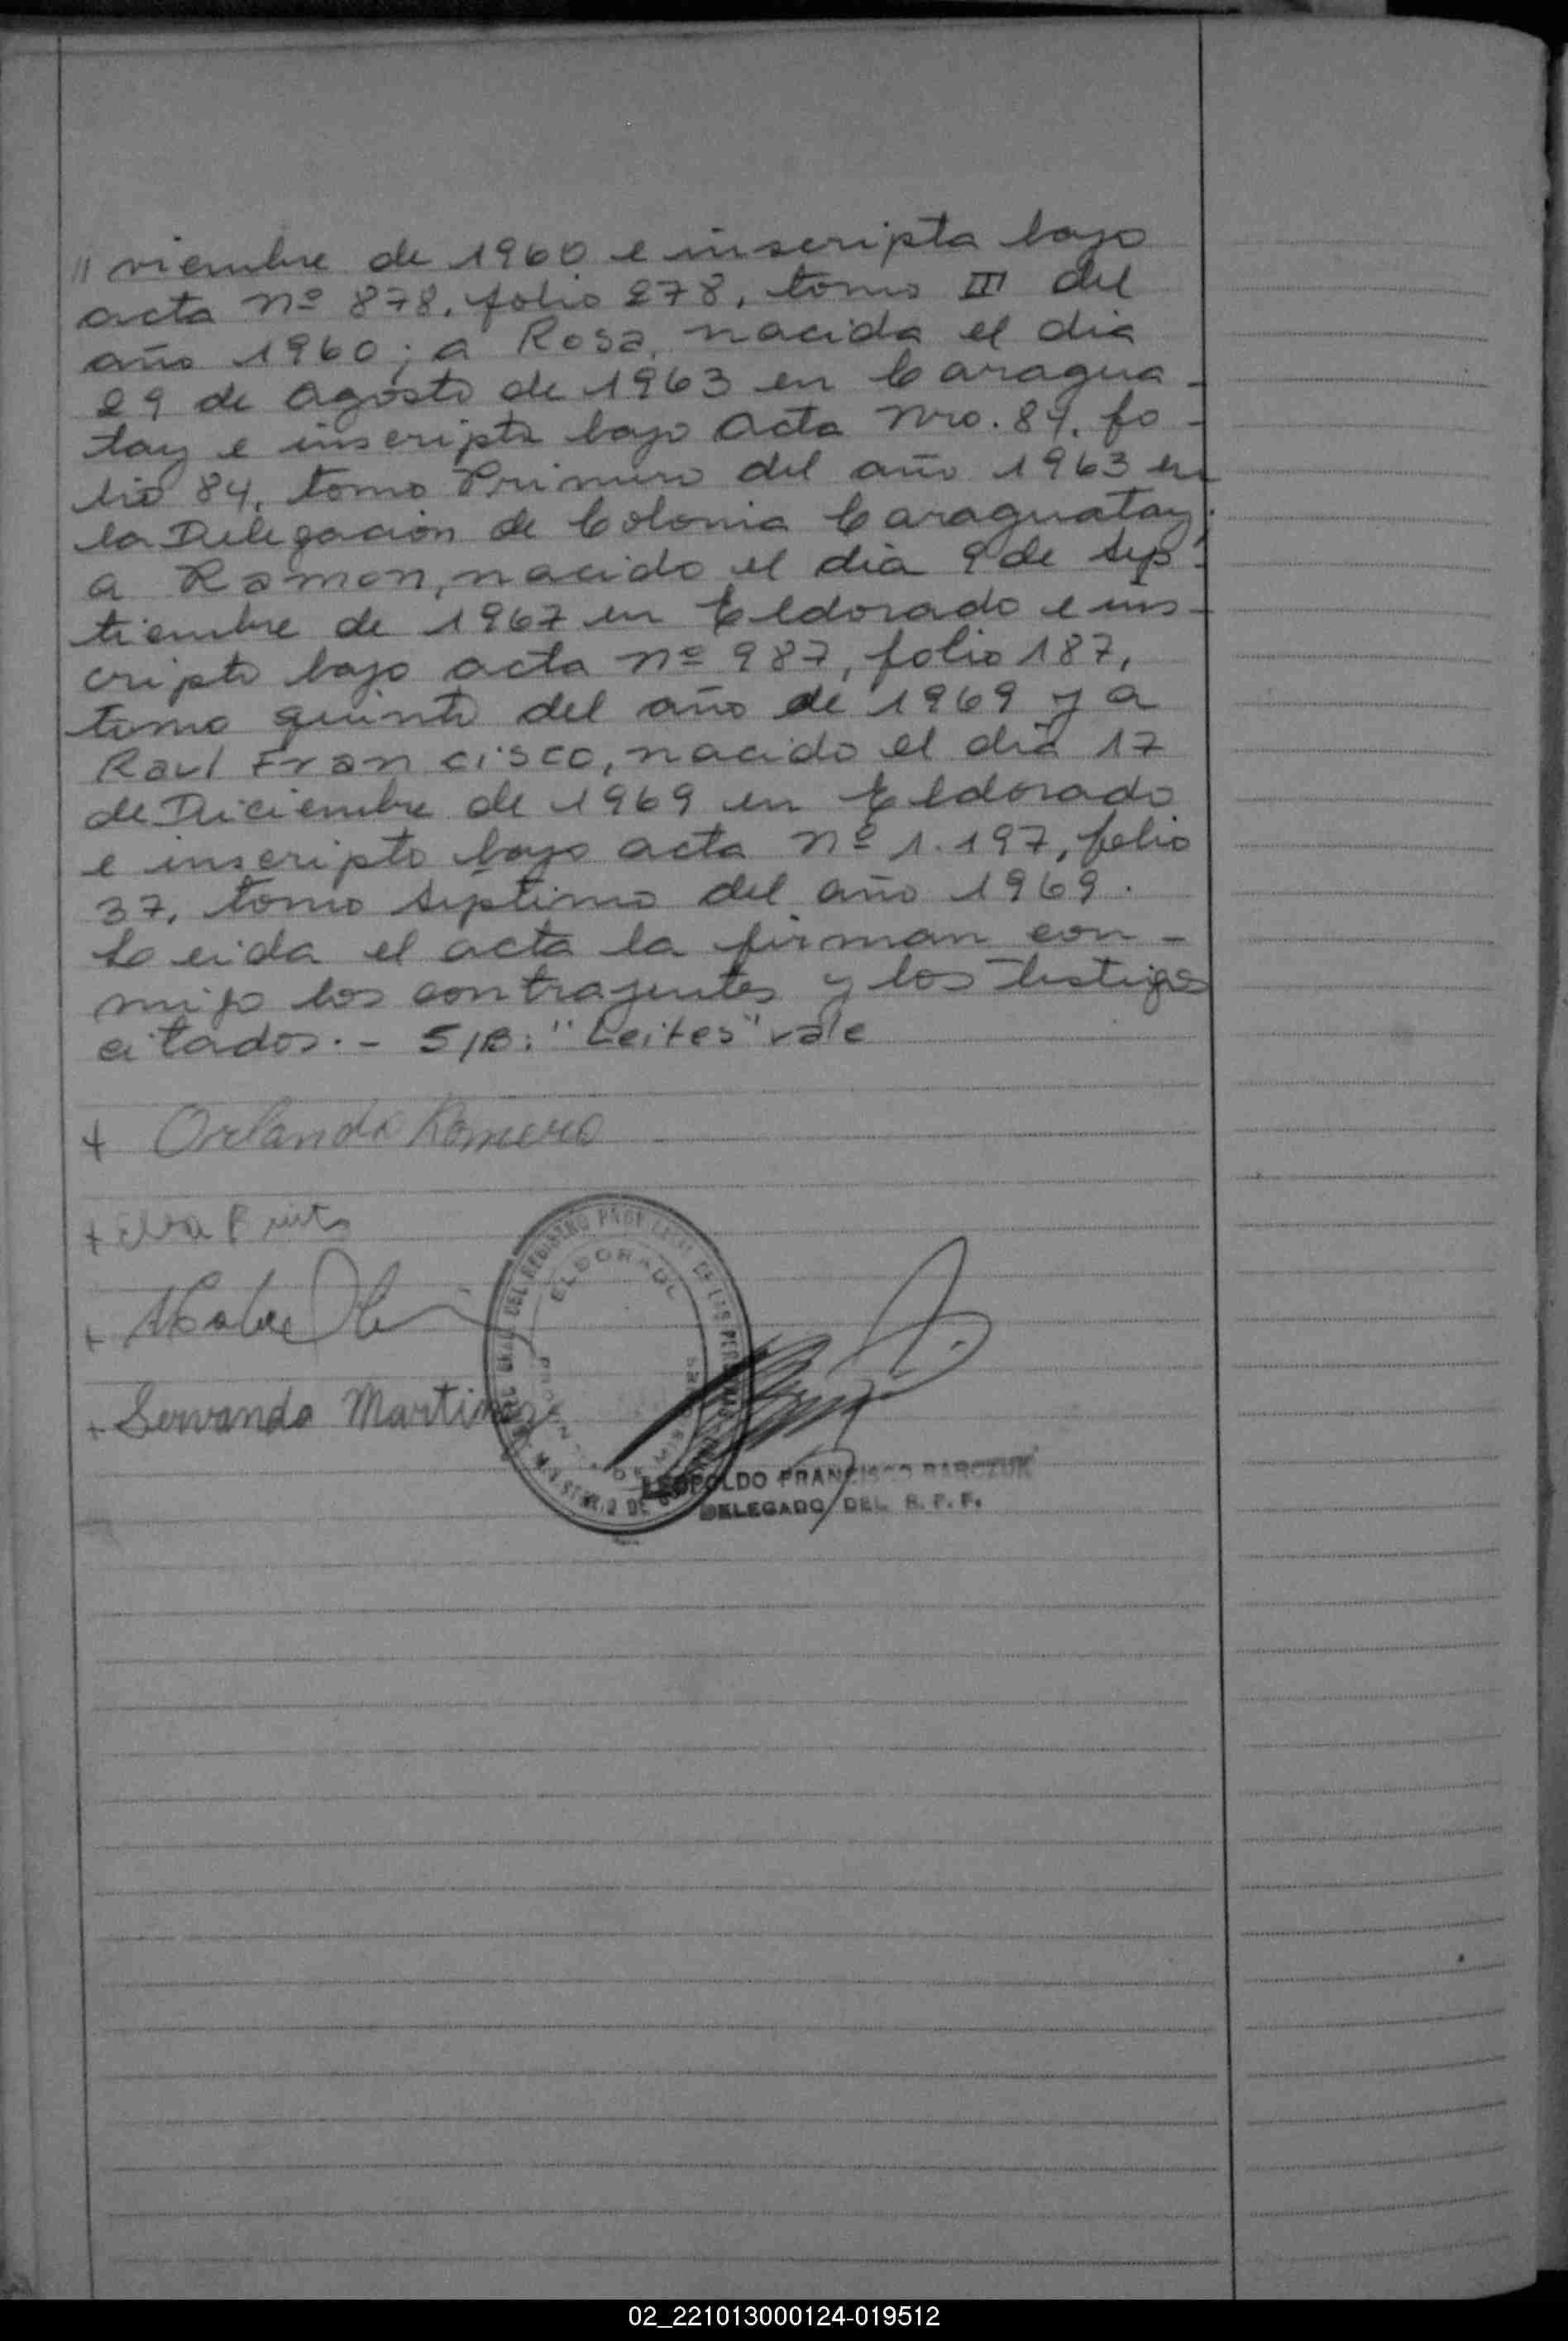 // viembre de 1960 e inscripta bajo
acta nº 878, folio 278, tomo III del
año 1960; a Rosa, nacida el dia
29 de Agosto de 1963 en Caragua-
tay e inscripta bajo Acta Nro. 84, fo-
lio 84, tomo Primero del año 1963 en
la Delegación de Colonia Caraguatay;
a Ramon, nacido el dia 9 de Sep-
tiembre de 1967 en Eldorado e ins-
cripto bajo acta nº 987, folio 187,
tomo quinto del año de 1969 y a
Raul Francisco, nacido el dia 17
de Diciembre de 1969 en Eldorado
e inscripto bajo acta nº 1.197, folio
37, tomo séptimo del año 1969.
Leida el acta la firman con-
migo los contrayentes y los testigos
citados.- S/B: "Leites" vale
+ Orlando Romero
+ Elva
+
+ Servando Martinez
ELDORADO
DEL REGISTRO PROVINCIAL DE LAS PERSONAS
PROVINCIA DE MISIONES
MINISTERIO DE
LEOPOLDO FRANCISCO BARCZUK
DELEGADO DEL R. P. P.
02_221013000124-019512